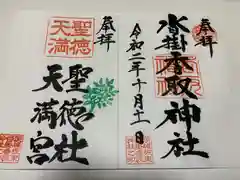 奉拝
沓掛香取神社
令和二年十月十一日
奉拝
聖徳
天満
聖徳社
天満宮